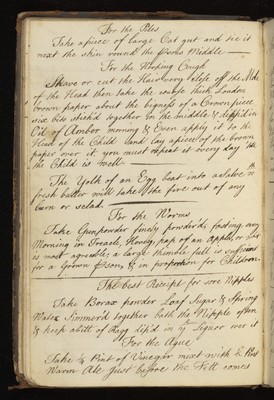 For the Piles
Take a piece of large Cat gut and tie it
next the skin round the Persons Middle
For the Hooping Cough
Shave or cut the Hair very close off the Mole
of the Head then take the coarse thick London
brown paper about the bigness of a Crown piece
six bits stich'd together in the middle & dipp'd in
Oil of Amber morning & Even apply it to the
Head of the Child and lay a piece of the brown
paper over it you must repeat it every day 'till
the Child is well
The Yolk of an Egg beat into a salve wth
fresh butter will take the fire out of any
burn or scald
For the Worms
Take Gunpowder finely powder'd, fasting, any
Morning in Treacle, Honey, pap of an Apple, or what
is most agreable; a large thimble full is sufficient
for a Grown Person, & in proportion for Children
The best Receipt for sore Nipples
Take Borax powder Loaf Sugar & Spring
Water Simmer'd together bath the Nipple often
& keep a bitt of Ragg dip'd in ye Liquor over it
For the Ague
Take ½ Pint of Vinegar mixt with
Warm Ale just before the Fitt comes